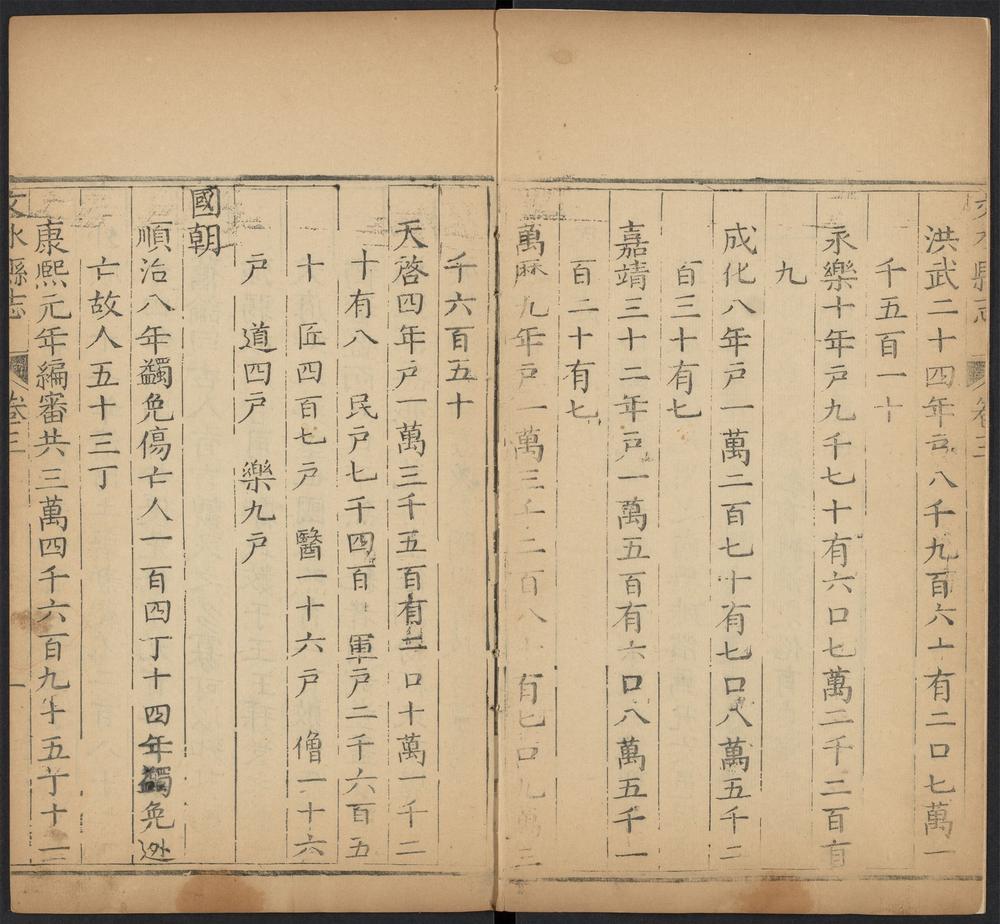 縣志 卷三
洪武二十四年戸八千九百六十有二口七萬一
千五百一十
永樂十年戸九千七十有六口七萬二千二百有
九
成化八年戸一萬二百七十有七口八萬五千二
百三十有七
嘉靖三十二年戸一萬五百有六口八萬五千一
百二十有七
萬曆九年戸一萬三千二百八十有七口九萬三
千六百五十
天啓四年戸一萬三千五百有三口十萬一千二
十有八 民戸七千四百 軍戸二千六百五
十 匠四百七戸 醫一十六戸 僧一十六
戸 道四戸 樂九戸
國朝
順治八年蠲免傷亡人一百四丁十四年蠲免逃
亡故人五十三丁
康熙元年編審共三萬四千六百九十五丁十一
文水縣志 卷三